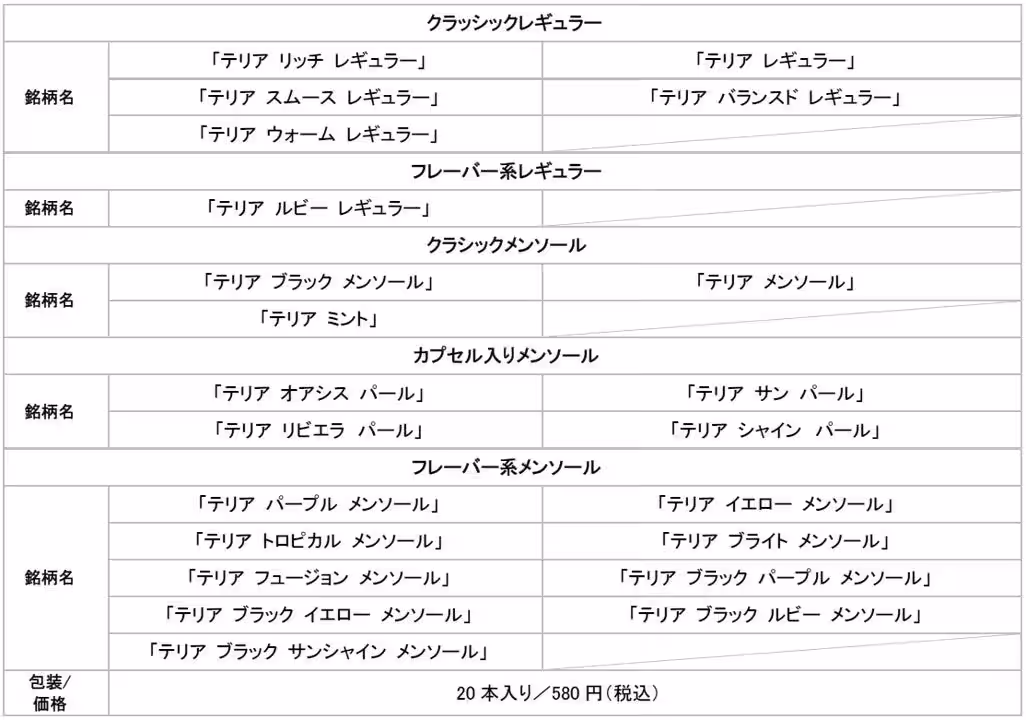 クラッシックレギュラー
銘柄名
「テリア リッチ レギュラー」
「テリア レギュラー」
「テリア スムース レギュラー」
「テリア バランスド レギュラー」
「テリア ウォーム レギュラー」
フレーバー系レギュラー
銘柄名
「テリア ルビー レギュラー」
クラシックメンソール
銘柄名
「テリア ブラック メンソール」
「テリア メンソール」
「テリア ミント」
カプセル入りメンソール
銘柄名
「テリア オアシス パール」
「テリア サン パール」
「テリア リビエラ パール」
「テリア シャイン パール」
フレーバー系メンソール
銘柄名
「テリア パープル メンソール」
「テリア イエロー メンソール」
「テリア トロピカル メンソール」
「テリア ブライト メンソール」
「テリア フュージョン メンソール」
「テリア ブラック パープル メンソール」
「テリア ブラック イエロー メンソール」
「テリア ブラック ルビー メンソール」
「テリア ブラック サンシャイン メンソール」
包装/
価格
20本入り／580円（税込）